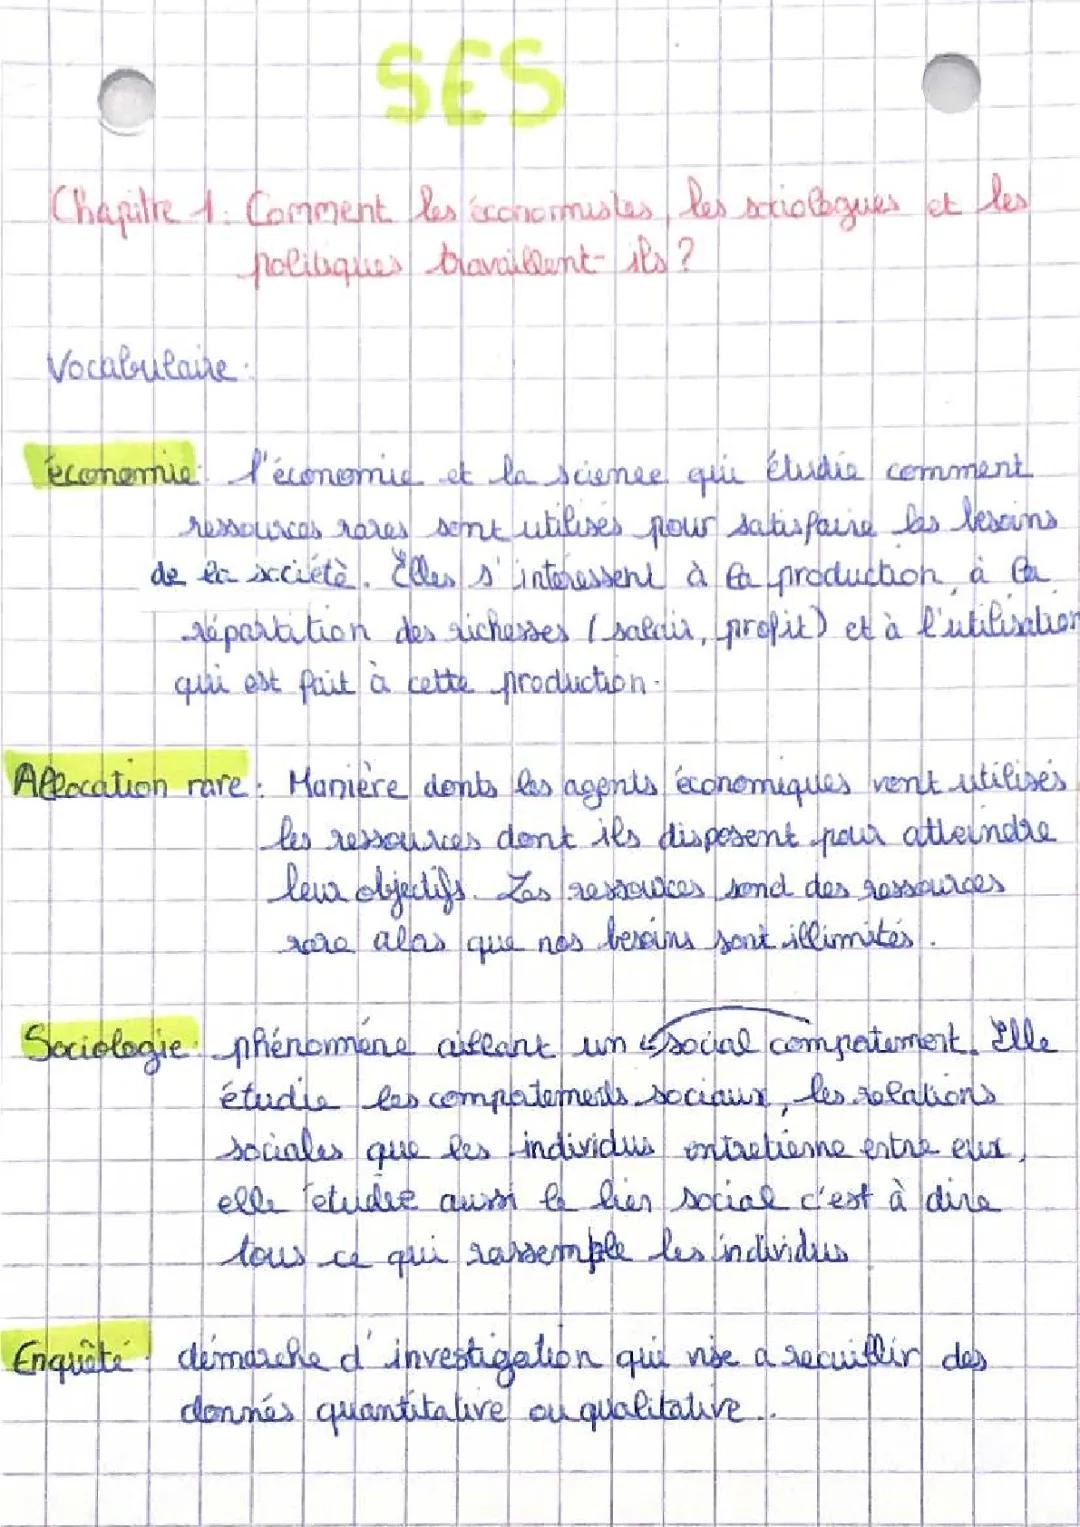 SES
Chapitre 1: Comment les économistes, les sociologues et les
politiques travaillent-ils ?
Vocabulaire:
économie: l'économie et la science qui étudie comment
ressources rares sont utilisés pour satisfaire les besoins
de la société. Elles s'intéressent à la production, à la
répartition des richesses (salair, profit) et à l'utilisation
qui est fait à cette production.
Allocation rare: Manière donts les agents économiques vont utilisés
les ressources dont ils disposent pour atteindre
leur objectifs. Les ressources sond des ressources
rare alas que nos besoins sont illimités.
Sociologie: phénomène un social compatement. Elle
étudie les compatements sociaux, les relations
sociales que les individus entretienne entre eux,
elle étudie aussi le lien social c'est à dire
tous ce qui rassemple les individus
Enquête: démarche d'investigation qui vise a recuillir des
donnés quantitative ou qualitative..